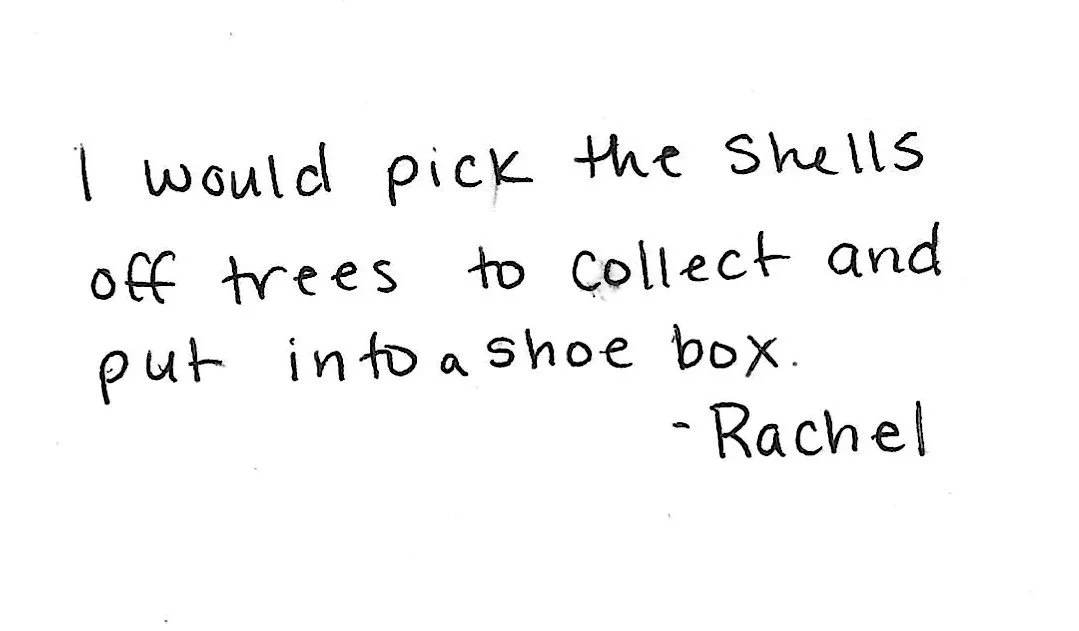 I would pick the shells
off trees to collect and
put into a shoe box.
- Rachel